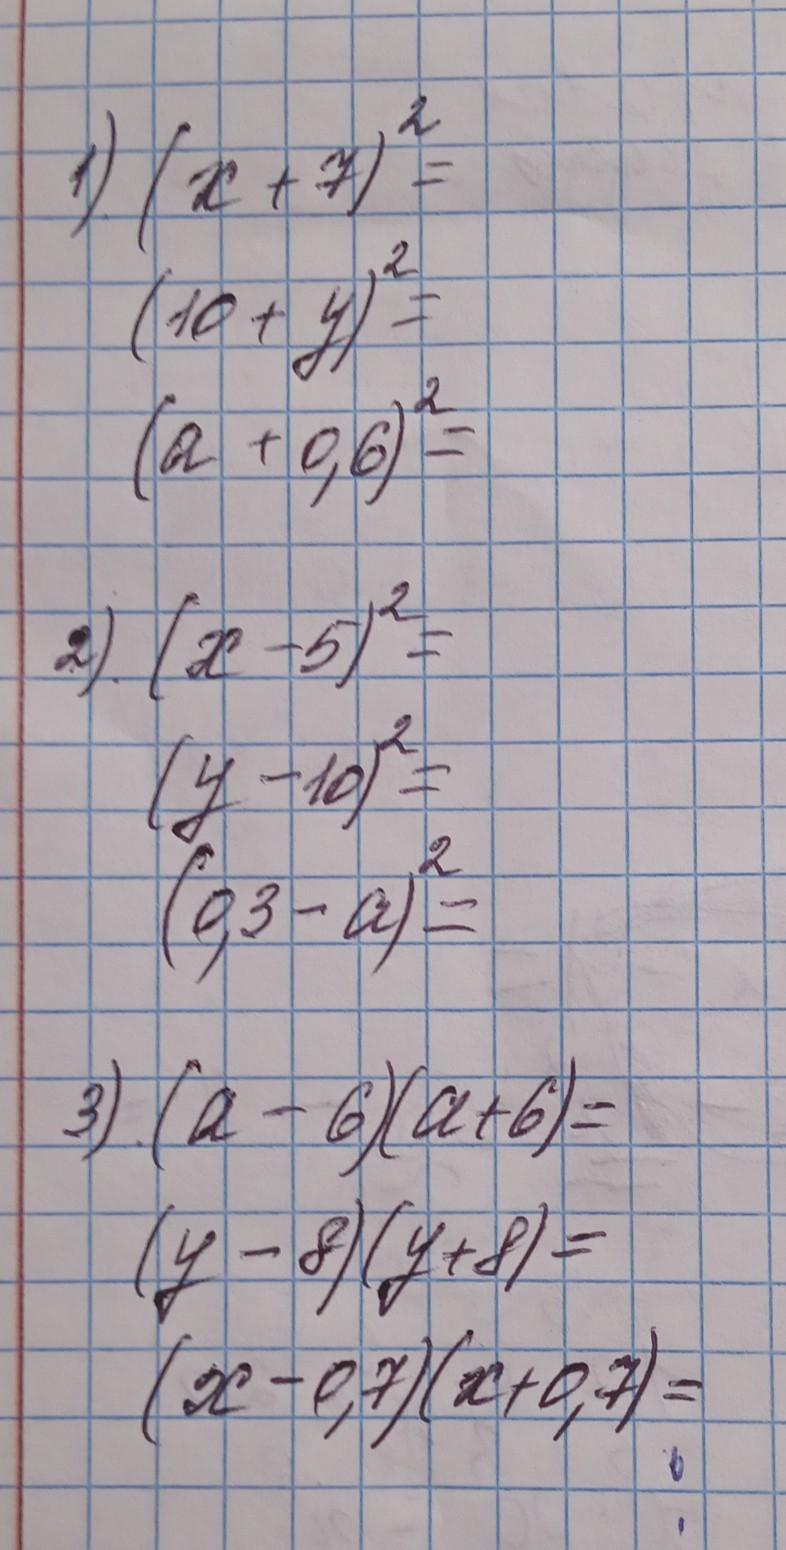 1). (x + 7)² =
(10 + y)² =
(a + 0,6)² =
2). (x - 5)² =
(y - 10)² =
(0,3 - a)² =
3). (a - 6)(a + 6) =
(y - 8)(y + 8) =
(x - 0,7)(x + 0,7) =